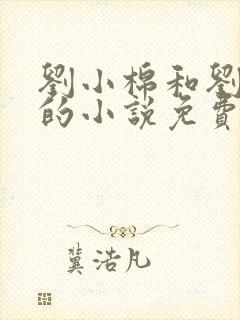 劉小棉和劉
的小說免費
冀浩凡